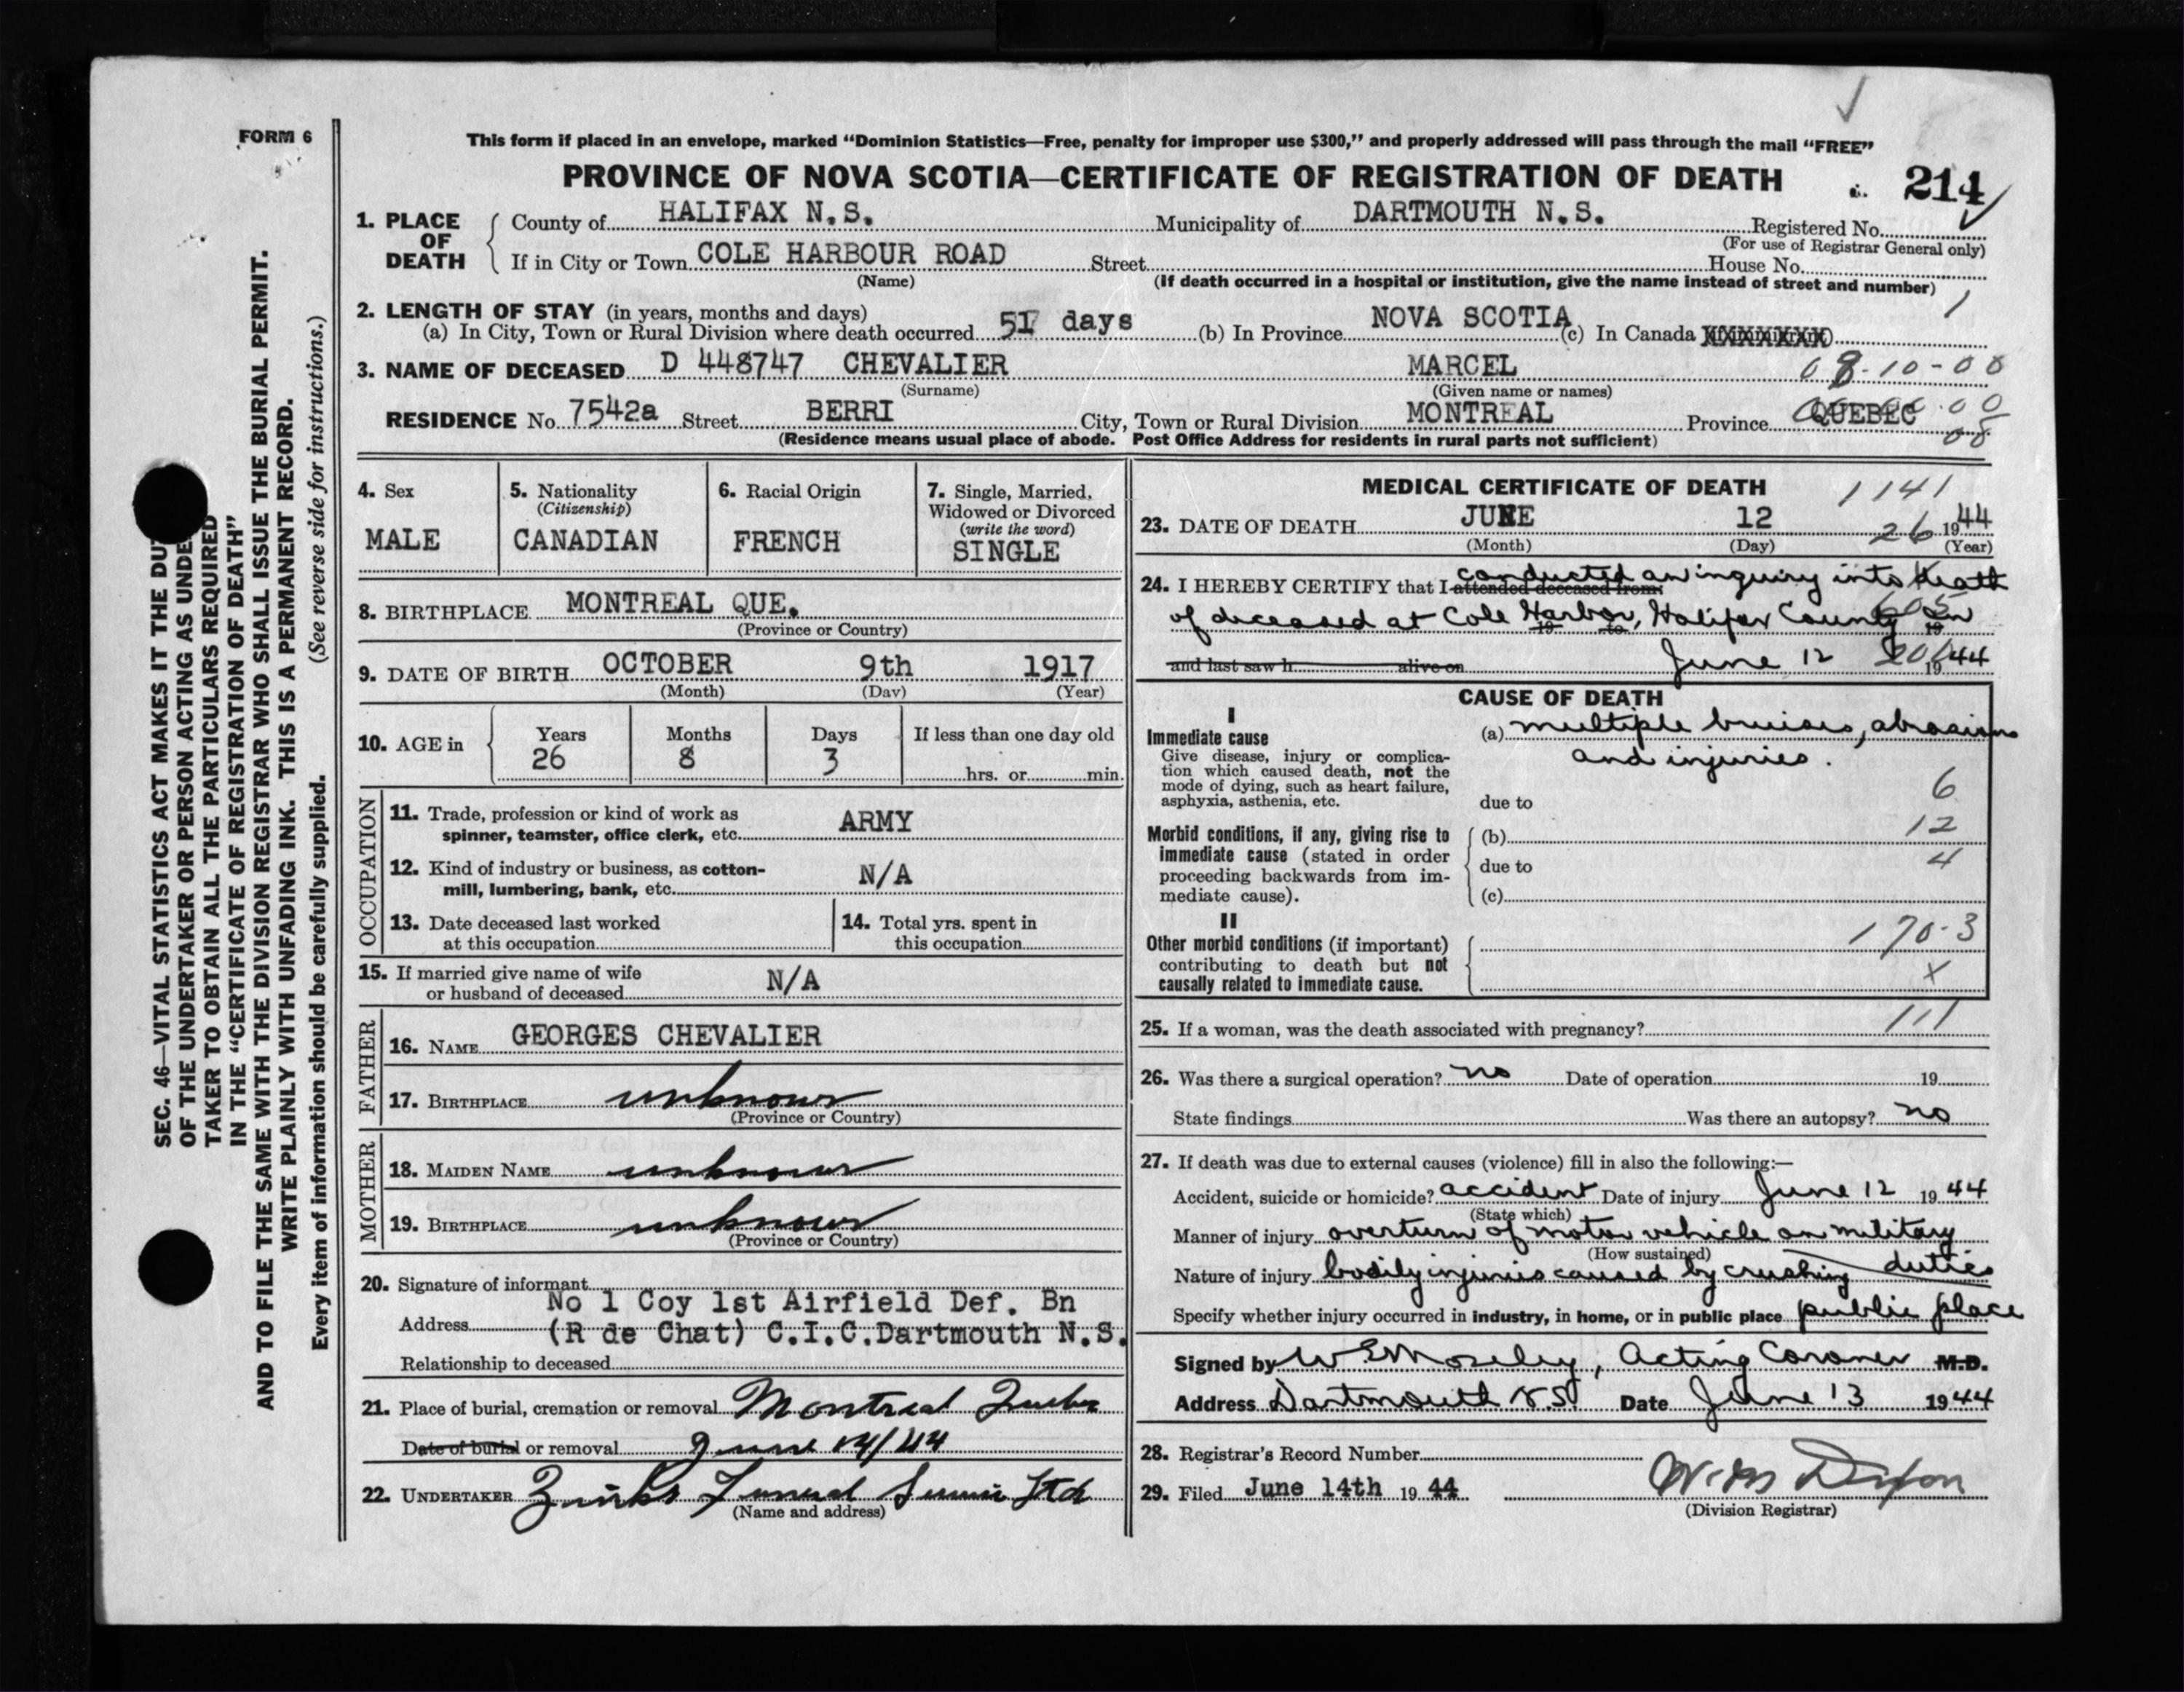 FORM 6
This form if placed in an envelope, marked “Dominion Statistics—Free, penalty for improper use $300,” and properly addressed will pass through the mail “FREE”
PROVINCE OF NOVA SCOTIA—CERTIFICATE OF REGISTRATION OF DEATH 214
1. PLACE OF DEATH
County of HALIFAX N.S. Municipality of DARTMOUTH N.S. Registered No.
(For use of Registrar General only)
If in City or Town COLE HARBOUR ROAD Street House No.
(Name) (If death occurred in a hospital or institution, give the name instead of street and number)
2. LENGTH OF STAY (in years, months and days) 1
(a) In City, Town or Rural Division where death occurred 51 days (b) In Province NOVA SCOTIA (c) In Canada
3. NAME OF DECEASED D 448747 CHEVALIER MARCEL 08-10-00
(Surname) (Given name or names)
RESIDENCE No. 7542a Street BERRI City, Town or Rural Division MONTREAL Province QUEBEC
(Residence means usual place of abode. Post Office Address for residents in rural parts not sufficient)
4. Sex
MALE
5. Nationality
(Citizenship)
CANADIAN
6. Racial Origin
FRENCH
7. Single, Married,
Widowed or Divorced
(write the word)
SINGLE
8. BIRTHPLACE MONTREAL QUE.
(Province or Country)
9. DATE OF BIRTH OCTOBER 9th 1917
(Month) (Day) (Year)
10. AGE in Years Months Days If less than one day old
26 8 3 hrs. or min.
OCCUPATION
11. Trade, profession or kind of work as
spinner, teamster, office clerk, etc. ARMY
12. Kind of industry or business, as cotton-
mill, lumbering, bank, etc. N/A
13. Date deceased last worked
at this occupation
14. Total yrs. spent in
this occupation
15. If married give name of wife
or husband of deceased N/A
FATHER
16. NAME GEORGES CHEVALIER
17. BIRTHPLACE unknown
(Province or Country)
MOTHER
18. MAIDEN NAME unknown
19. BIRTHPLACE unknown
(Province or Country)
20. Signature of informant
No 1 Coy 1st Airfield Def. Bn
Address (R de Chat) C.I.C.Dartmouth N.S.
Relationship to deceased
21. Place of burial, cremation or removal Montreal Quebec
Date of burial or removal June 14/44
22. UNDERTAKER Zinks Funeral Service Ltd
(Name and address)
MEDICAL CERTIFICATE OF DEATH 1141
23. DATE OF DEATH JUNE 12 26 1944
(Month) (Day) (Year)
24. I HEREBY CERTIFY that I attended deceased from: conducted an inquiry into death
of deceased at Cole Harbor, Halifax County on
and last saw h alive on June 12 1944
CAUSE OF DEATH
I
Immediate cause
Give disease, injury or complica-
tion which caused death, not the
mode of dying, such as heart failure,
asphyxia, asthenia, etc.
(a) multiple bruises, abrasions
and injuries.
6
due to
Morbid conditions, if any, giving rise to
immediate cause (stated in order
proceeding backwards from im-
mediate cause).
(b) 12
due to 4
(c)
II
Other morbid conditions (if important)
contributing to death but not
causally related to immediate cause.
170-3
x
25. If a woman, was the death associated with pregnancy? 111
26. Was there a surgical operation? no Date of operation 19
State findings Was there an autopsy? no
27. If death was due to external causes (violence) fill in also the following:—
Accident, suicide or homicide? accident Date of injury June 12 1944
(State which)
Manner of injury overturn of motor vehicle on military
(How sustained) duties
Nature of injury bodily injuries caused by crushing
Specify whether injury occurred in industry, in home, or in public place public place
Signed by W E Moseley, Acting Coroner M.D.
Address Dartmouth N.S. Date June 13 1944
28. Registrar's Record Number
29. Filed June 14th 1944 W.M Dixon
(Division Registrar)
SEC. 46—VITAL STATISTICS ACT MAKES IT THE DU
OF THE UNDERTAKER OR PERSON ACTING AS UNDE
TAKER TO OBTAIN ALL THE PARTICULARS REQUIRED
IN THE “CERTIFICATE OF REGISTRATION OF DEATH”
AND TO FILE THE SAME WITH THE DIVISION REGISTRAR WHO SHALL ISSUE THE BURIAL PERMIT.
WRITE PLAINLY WITH UNFADING INK. THIS IS A PERMANENT RECORD.
Every item of information should be carefully supplied. (See reverse side for instructions.)